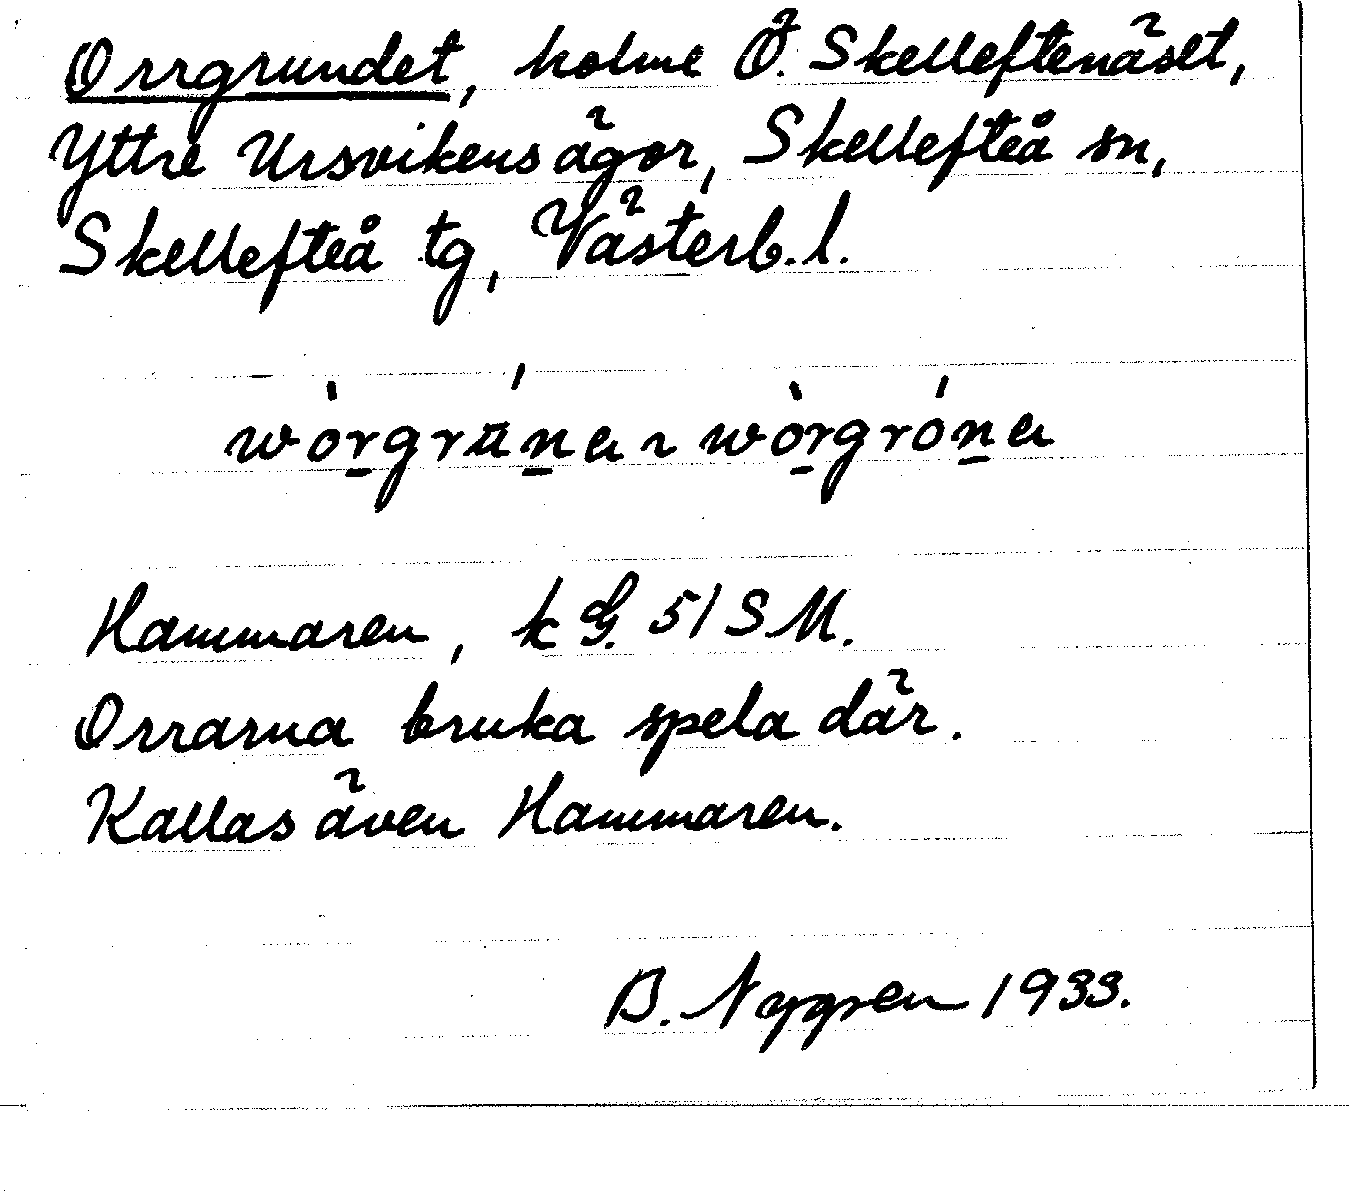 Orrgrundet, holme Ö. Skelleftenäset,
Yttre Ursvikens ägor, Skellefteå sn,
Skellefteå tg, Västerb. l.
wòrgrúna ~ wòrgróna
Hammaren, k G. 51 S M.
Orrarna bruka spela där.
Kallas även Hammaren.
B. Nygren 1933.